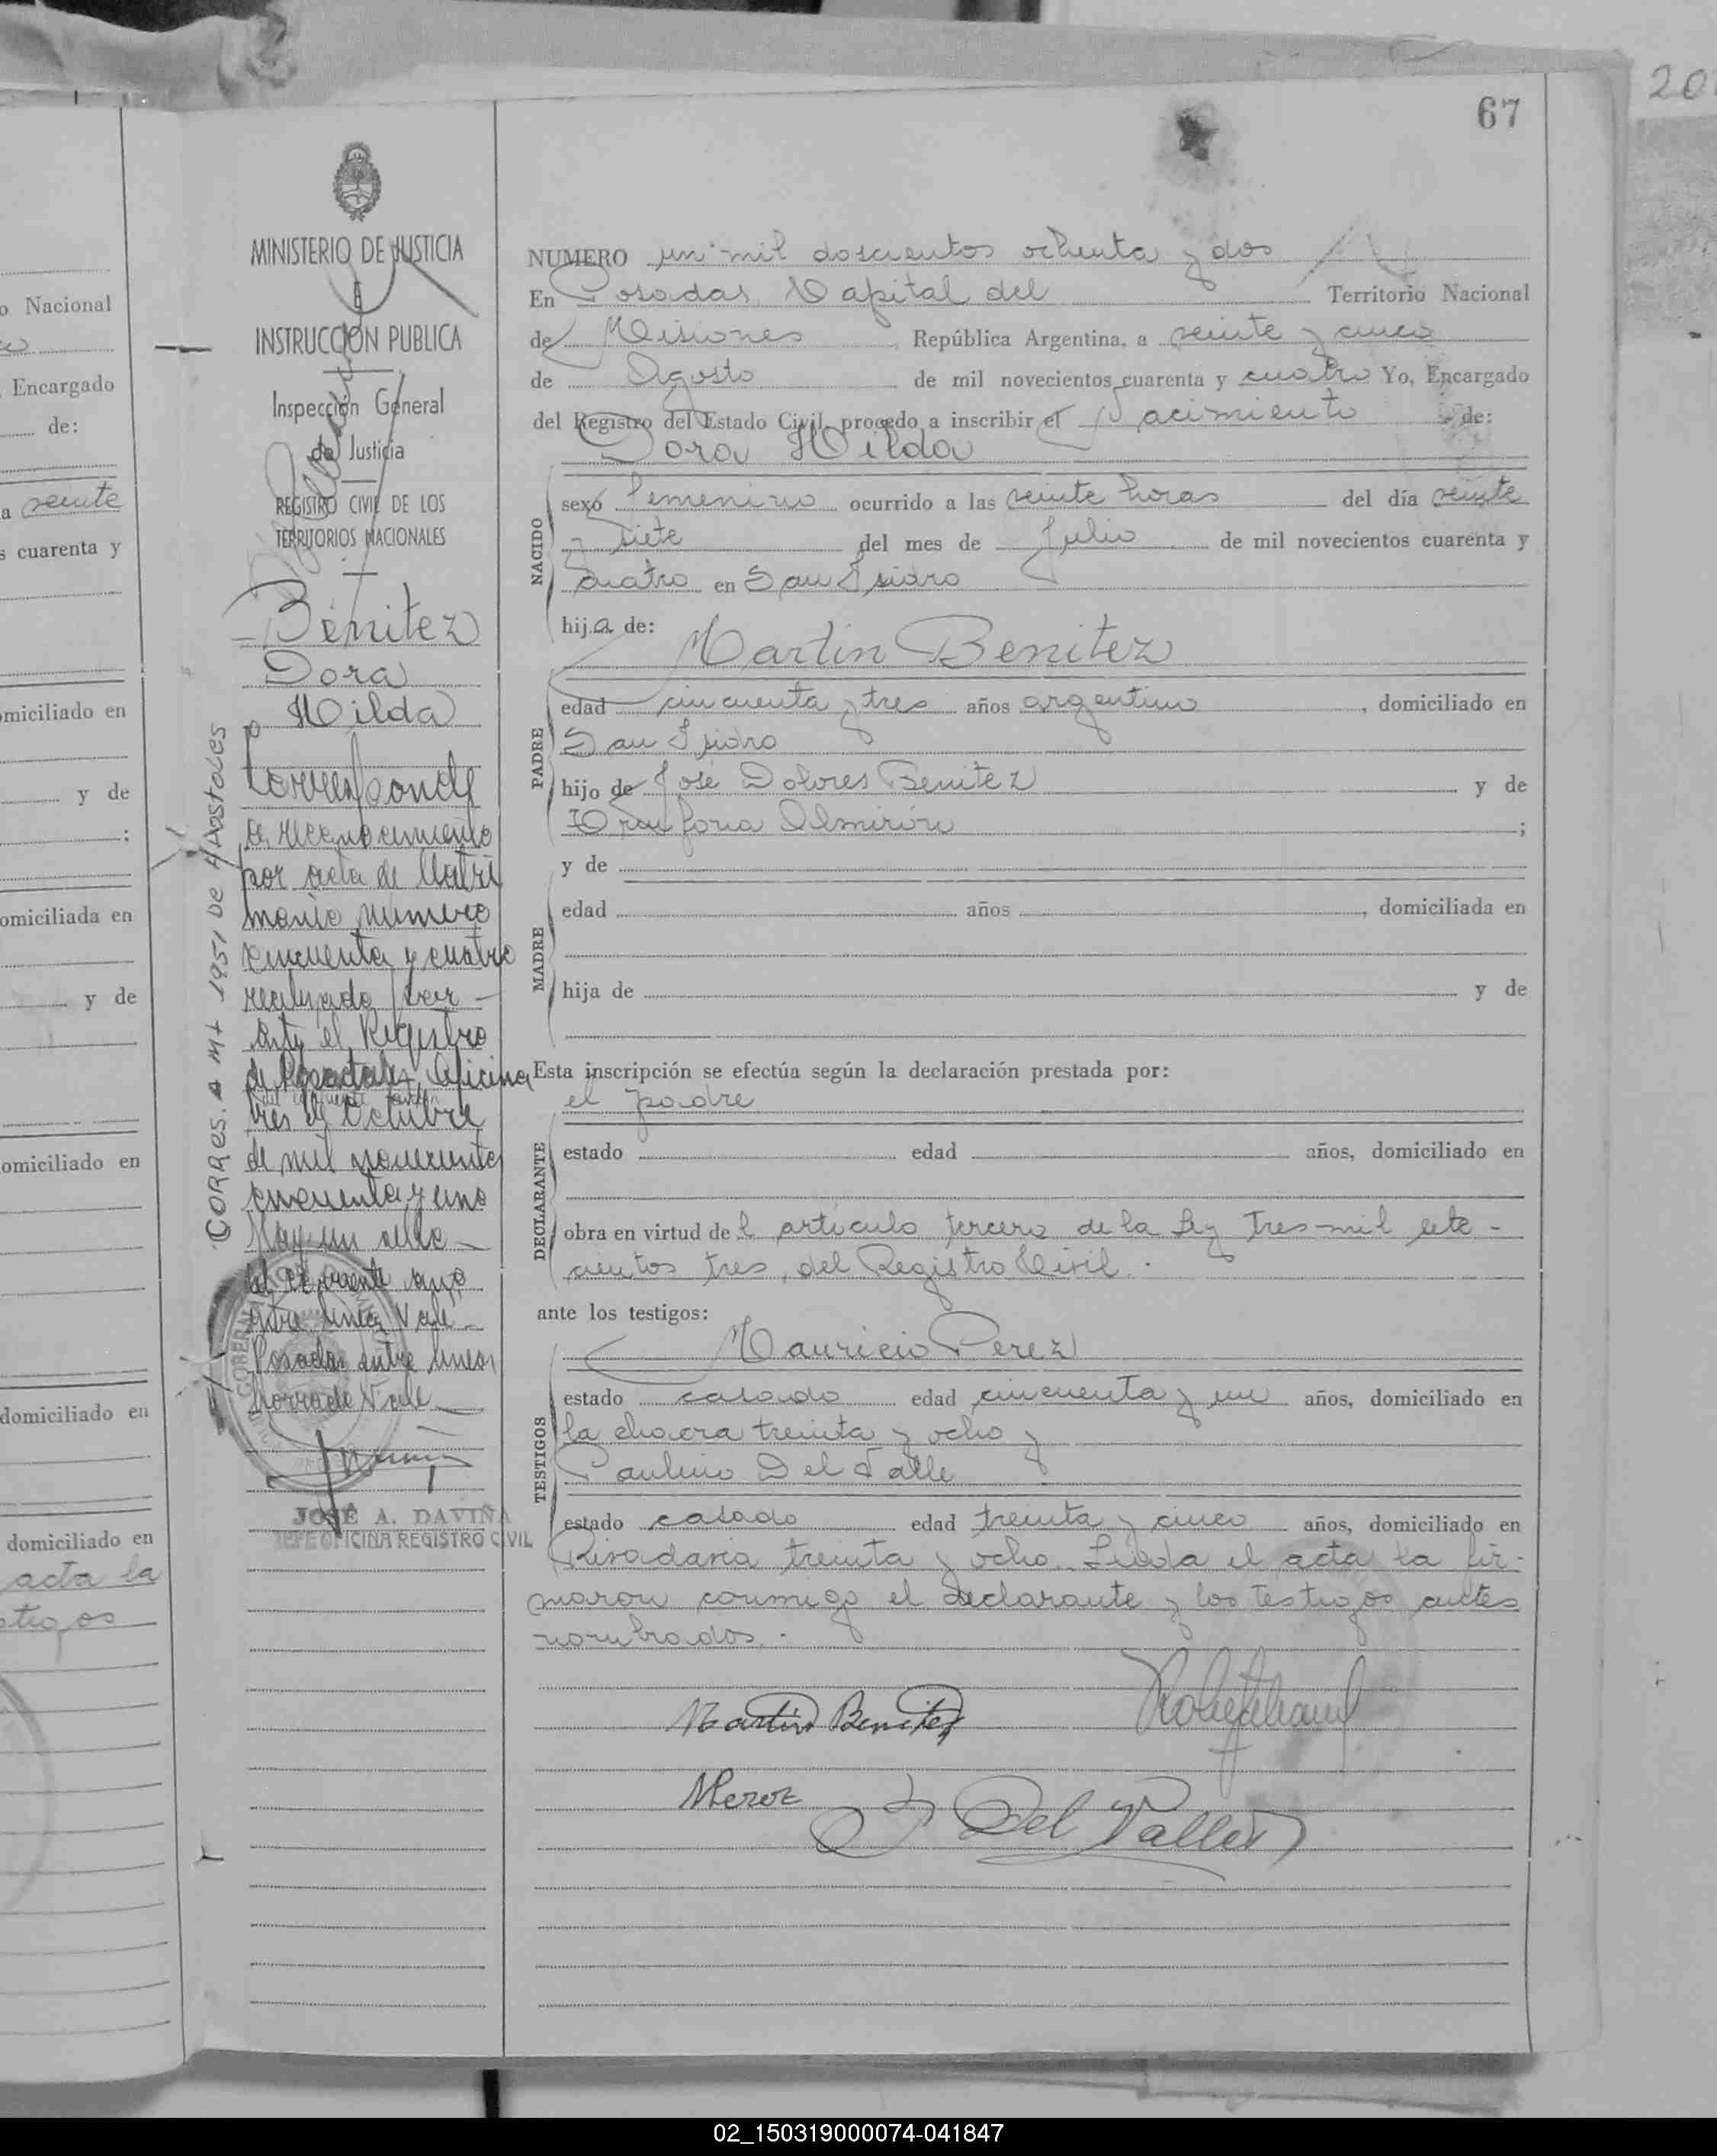 67
20
MINISTERIO DE JUSTICIA
E
INSTRUCCION PUBLICA
Inspección General
de Justicia
REGISTRO CIVIL DE LOS
TERRITORIOS NACIONALES
Benitez
Dora
Hilda
Corresponde
reconocimiento
por acta de Matri
monio número
cincuenta y cuatro
realizado por
ante el Registro
de Oficina
tres de Octubre
de mil novecientos
cincuenta y uno
Hay un sello
del corriente año
entre lineas Vale
Posadas entre lineas
borrado Vale
JOSÉ A. DAVIÑA
JEFE OFICINA REGISTRO CIVIL
CORRES. A MT 1951 DE APOSTOLES
NUMERO un mil doscientos ochenta y dos
En Posadas Capital del Territorio Nacional
de Misiones, República Argentina, a veinte y cinco
de Agosto de mil novecientos cuarenta y cuatro Yo, Encargado
del Registro del Estado Civil, procedo a inscribir el Nacimiento de:
Dora Hilda
NACIDO
sexo femenino ocurrido a las veinte horas del día veinte
y siete del mes de Julio de mil novecientos cuarenta y
cuatro en San Isidro
hija de:
Martin Benitez
PADRE
edad cincuenta y tres años argentino, domiciliado en
San Isidro
hijo de José Dolores Benitez y de
Almirón;
y de
MADRE
edad años, domiciliada en
hija de y de
Esta inscripción se efectúa según la declaración prestada por:
el padre
DECLARANTE
estado edad años, domiciliado en
obra en virtud del artículo tercero de la Ley tres mil sete-
cientos tres, del Registro Civil.-
ante los testigos:
Mauricio Perez
TESTIGOS
estado casado edad cincuenta y un años, domiciliado en
la chacra treinta y ocho y
Paulino Del Valle
estado casado edad treinta y cinco años, domiciliado en
Rivadavia treinta y ocho. Leida el acta la fir-
maron conmigo el declarante y los testigos antes
nombrados.-
Martin Benitez
MPerez
Del Valle
o Nacional
Encargado
de:
a veinte
s cuarenta y
omiciliado en
y de
;
omiciliada en
y de
omiciliado en
domiciliado en
domiciliado en
acta la
stigos
02_150319000074-041847